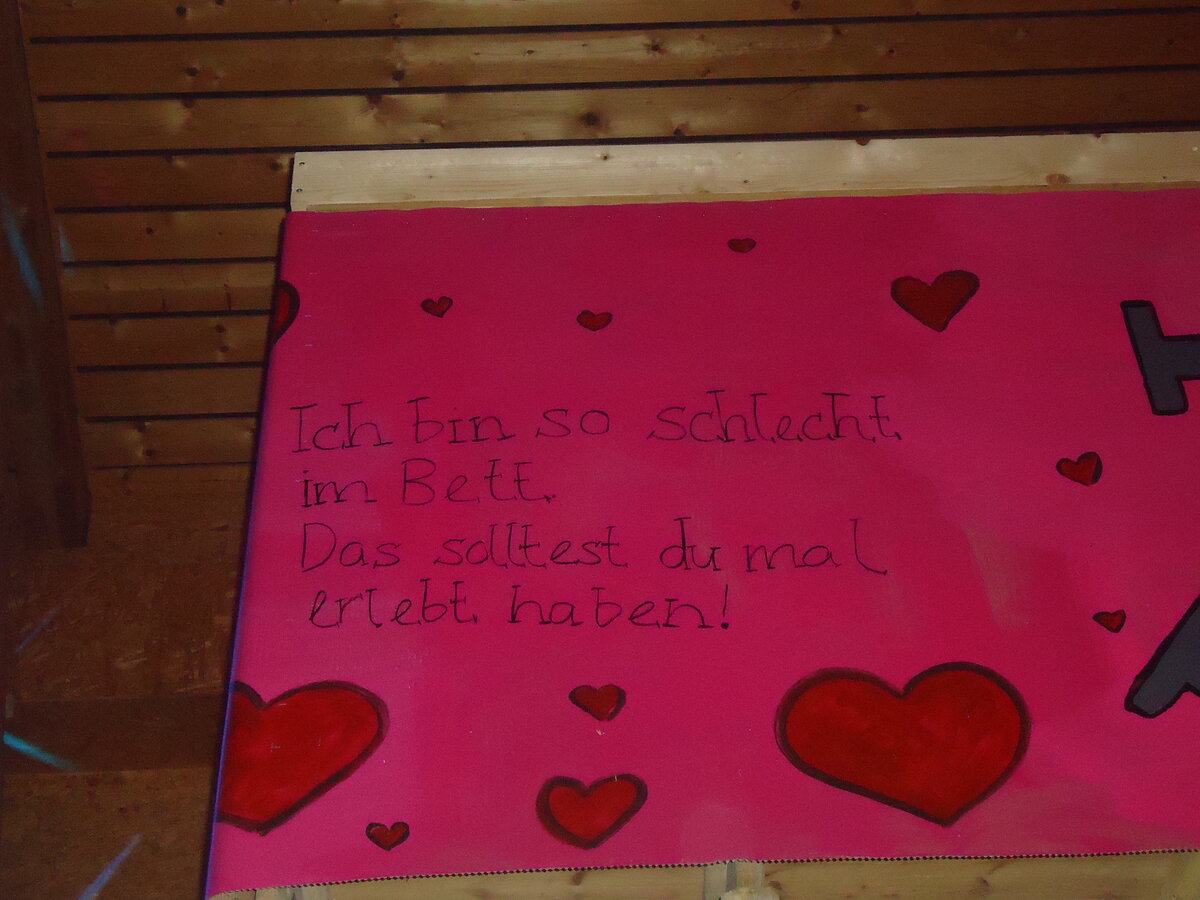 Ich bin so schlecht
im Bett.
Das solltest du mal
erlebt haben!